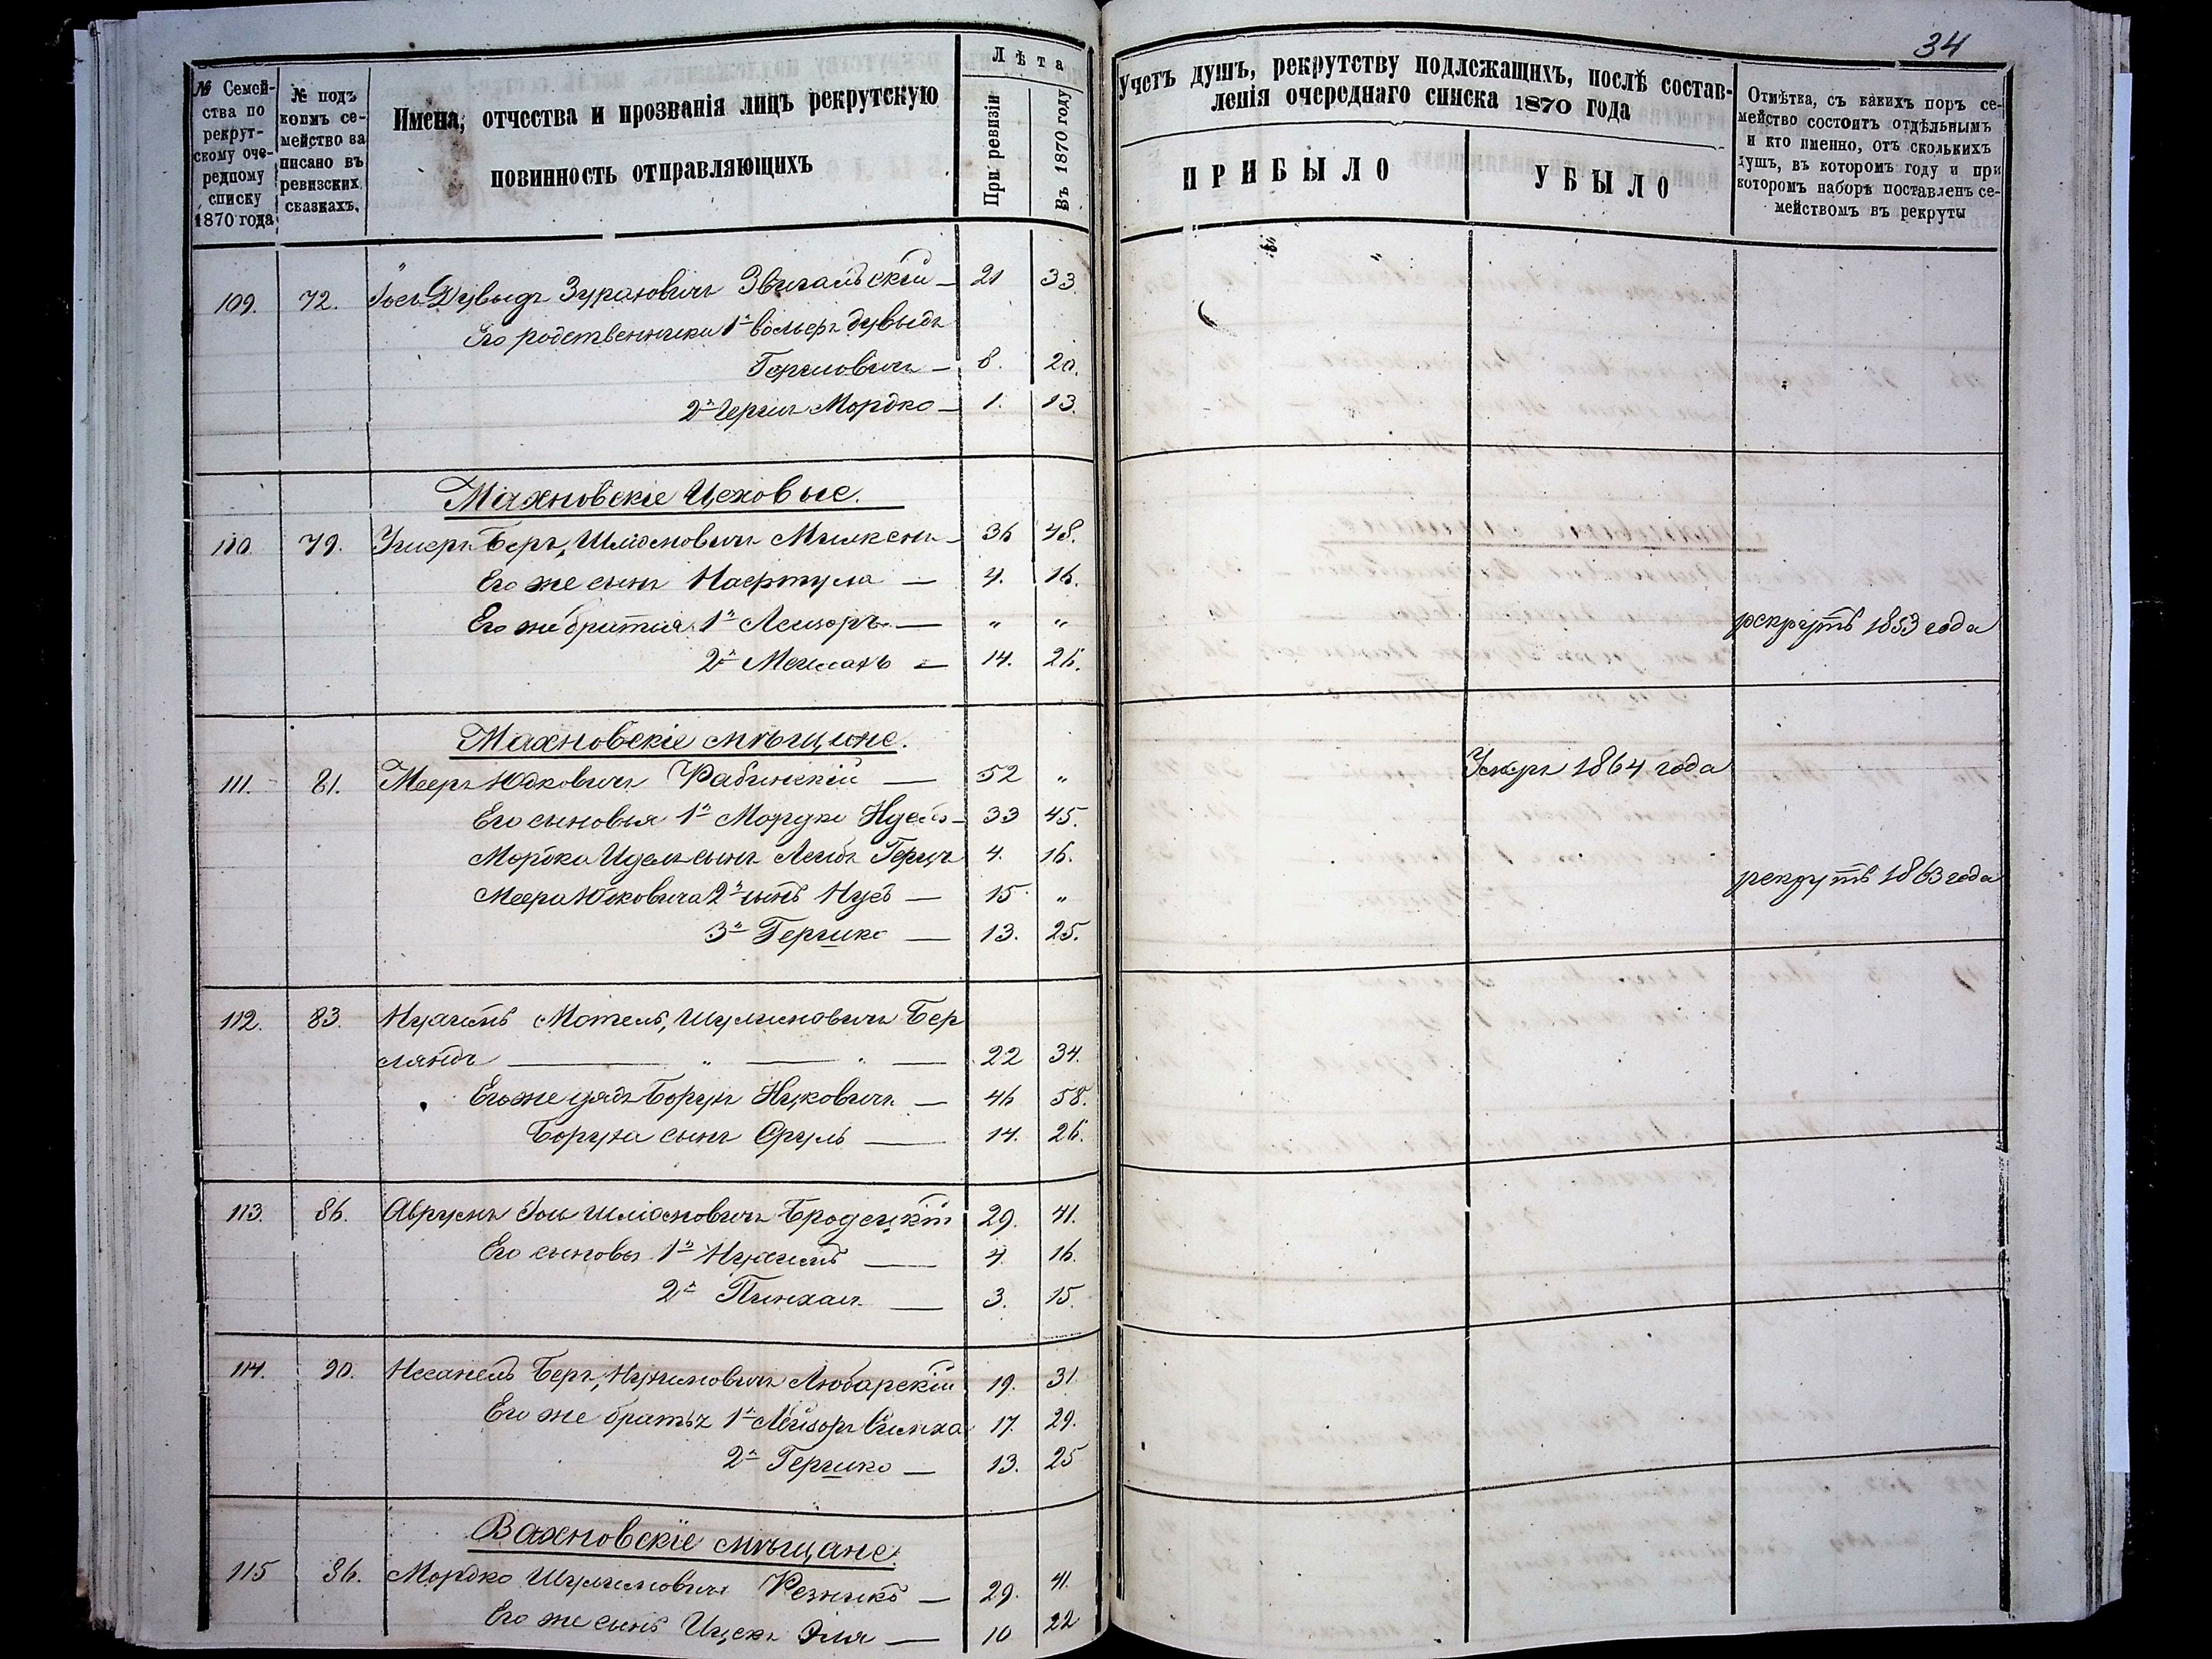 34
№ Семей-
ства по
рекрут-
скому оче-
редному
списку
1870 года
№ подъ
коимъ се-
мейство за
писано въ
ревизских
сказкахъ.
Имена, отчества и прозванія лицъ рекрутскую
повинность отправляющихъ
Лѣта
При ревизіи
Въ 1870 году
Учетъ душъ, рекрутству подлежащихъ, послѣ состав-
ленія очереднаго списка 1870 года
ПРИБЫЛО
УБЫЛО
Отмѣтка, съ какихъ поръ се-
мейство состоитъ отдѣльнымъ
и кто именно, отъ сколькихъ
душъ, въ которомъ году и при
которомъ наборѣ поставленъ се-
мействомъ въ рекруты
109. 72. Іось Дувыдъ Звигальскій 21 33.
Его родственники 1й Дувыдъ
Гершовичъ 8. 20.
2й Гершъ Мордко 1. 13.
Махновскіе Цеховые.
110. 79. Беръ, Шліомовичъ 36 48.
Его же сынъ Нафтула 4. 16.
Его же братья 1й Лейзоръ " " рекрутъ 1853 года
2й 14. 26.
Махновскіе мѣщане.
111. 81. Мееръ Юдковичъ Рабинскій 52 " Умеръ 1864 года
Его сыновья 1й Мордко 33 45.
Мордка сынъ Лейбъ Герцъ 4. 16.
Меера Юдковича 2й сынъ 15 " рекрутъ 1863 года
3й Гершко 13. 25.
112. 83. Нухимъ Мотель, Шулимовичъ Бер
ляндъ 22 34.
Его же дядя Борухъ Ицковичъ 46 58.
Боруха сынъ Сруль 14. 26.
113. 86. Аврумъ Іось Шліомовичъ Бродецкій 29. 41.
Его сыновья 1й Нухимъ 4. 16.
2й Пинхасъ 3. 15.
114. 90. Несанель Беръ, Нухимовичъ Любарскій 19. 31
Его же братья 1й Лейзоръ Симха 17. 29.
2й Гершко 13. 25
Вахновскіе мѣщане.
115 36. Мордко Шулимовичъ Резникъ 29. 41.
Его же сынъ Ицекъ Эля 10 22